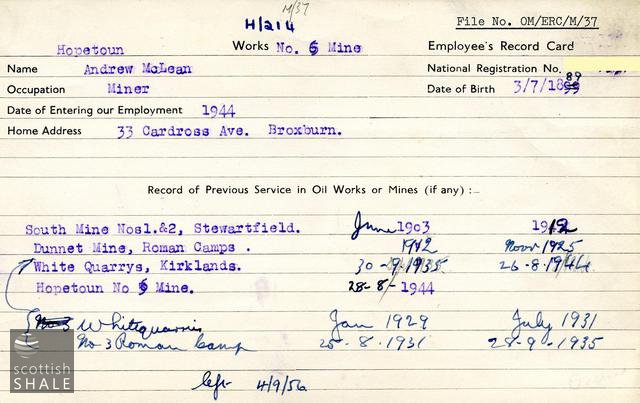 M/37
H/214
File No. OM/ERC/M/37
Hopetoun Works No. 6 Mine Employee's Record Card
Name Andrew McLean National Registration No.
Occupation Miner Date of Birth 3/7/1889
Date of Entering our Employment 1944
Home Address 33 Cardross Ave. Broxburn.
Record of Previous Service in Oil Works or Mines (if any) :—
South Mine Nos1.&2, Stewartfield. June 1903 1912
Dunnet Mine, Roman Camps . 1912 Novr 1925
White Quarrys, Kirklands. 30-9-1935 26-8-1944
Hopetoun No 6 Mine. 28-8-1944
No 3 Whitequarries Jan 1929 July 1931
No 3 Roman Camp 25-8-1931 28-9-1935
left 4/9/56
scottish
SHALE